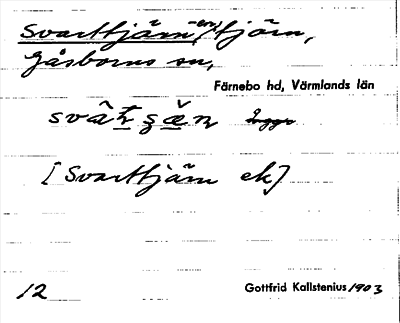 Svarttjärn, -en, tjärn,
Gåsborns sn,
Färnebo hd, Värmlands län
[Svarttjärn ek]
12 Gottfrid Kallstenius 1903